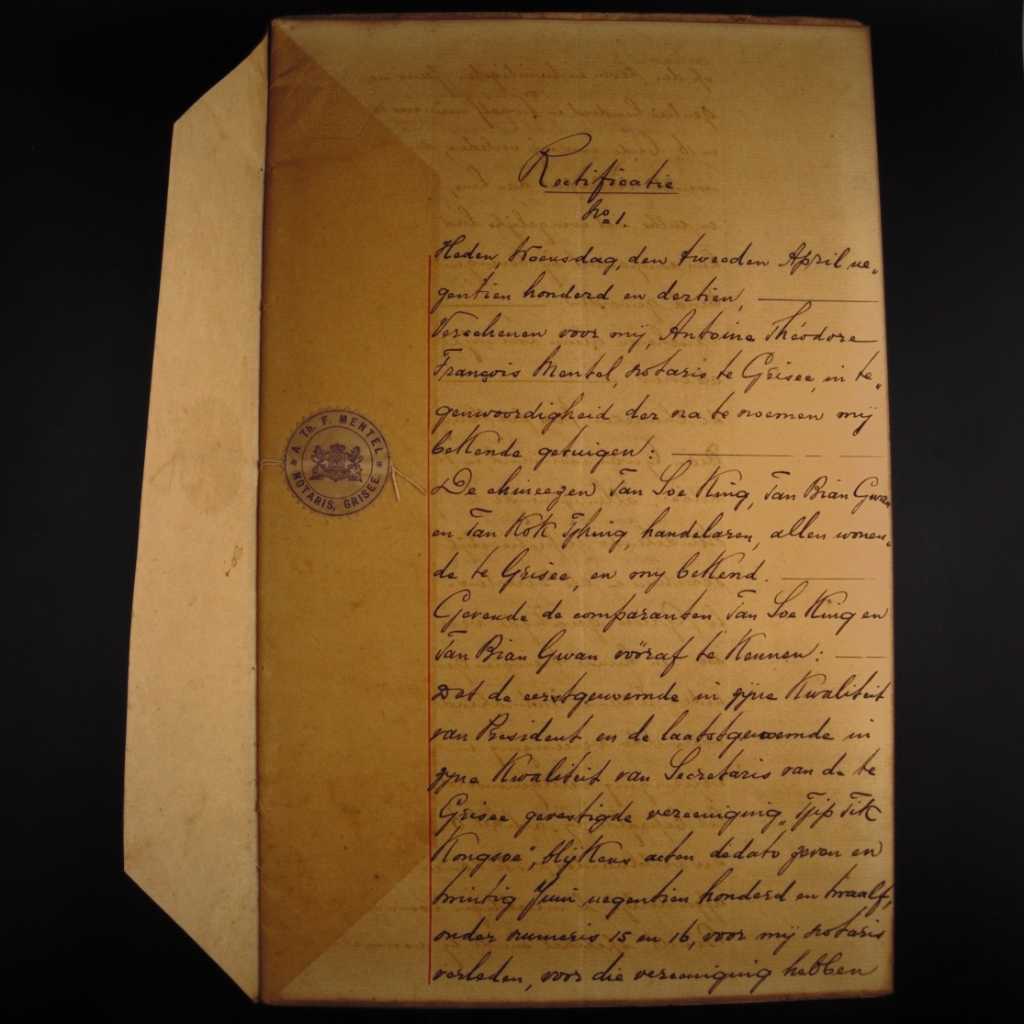 Rectificatie
No 1.
Heden, Woensdag, den tweeden April ne„
gentien honderd en dertien,
Verschenen voor mij, Antoine Théodore
François Mentel, notaris te Grisee, in te„
genwoordigheid der na te noemen mij
bekende getuigen:
De chineezen Tan Soe King, Tan Bian Gwan
en Tan Kok Tjhing, handelaren, allen wonen„
de te Grisee, en mij bekend.
Gevende de comparanten Tan Soe King en
Tan Bian Gwan vóóraf te kennen:
Dat de eerstgenoemde in zijne kwaliteit
van President en de laatstgenoemde in
zijne kwaliteit van Secretaris van de te
Grisee gevestigde vereeniging „Tjip Tik
Kongsoe", blijkens acten dedato zeven en
twintig Juni negentien honderd en twaalf,
onder numeris 15 en 16, voor mij notaris
verleden, voor die vereeniging hebben
A. Th. F. MENTEL
NOTARIS, GRISEE